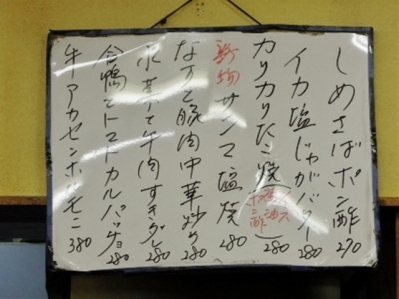 しめさばポン酢 270
イカ塩じゃがバター 280
カリカリたこ焼 (ソース 醤油 ポン酢) 280
新物 サンマ塩焼 280
なすと豚肉中華炒め 280
水菜と牛肉すきダレ 280
合鴨とトマトカルパッチョ 280
牛アカセンホルモン 380